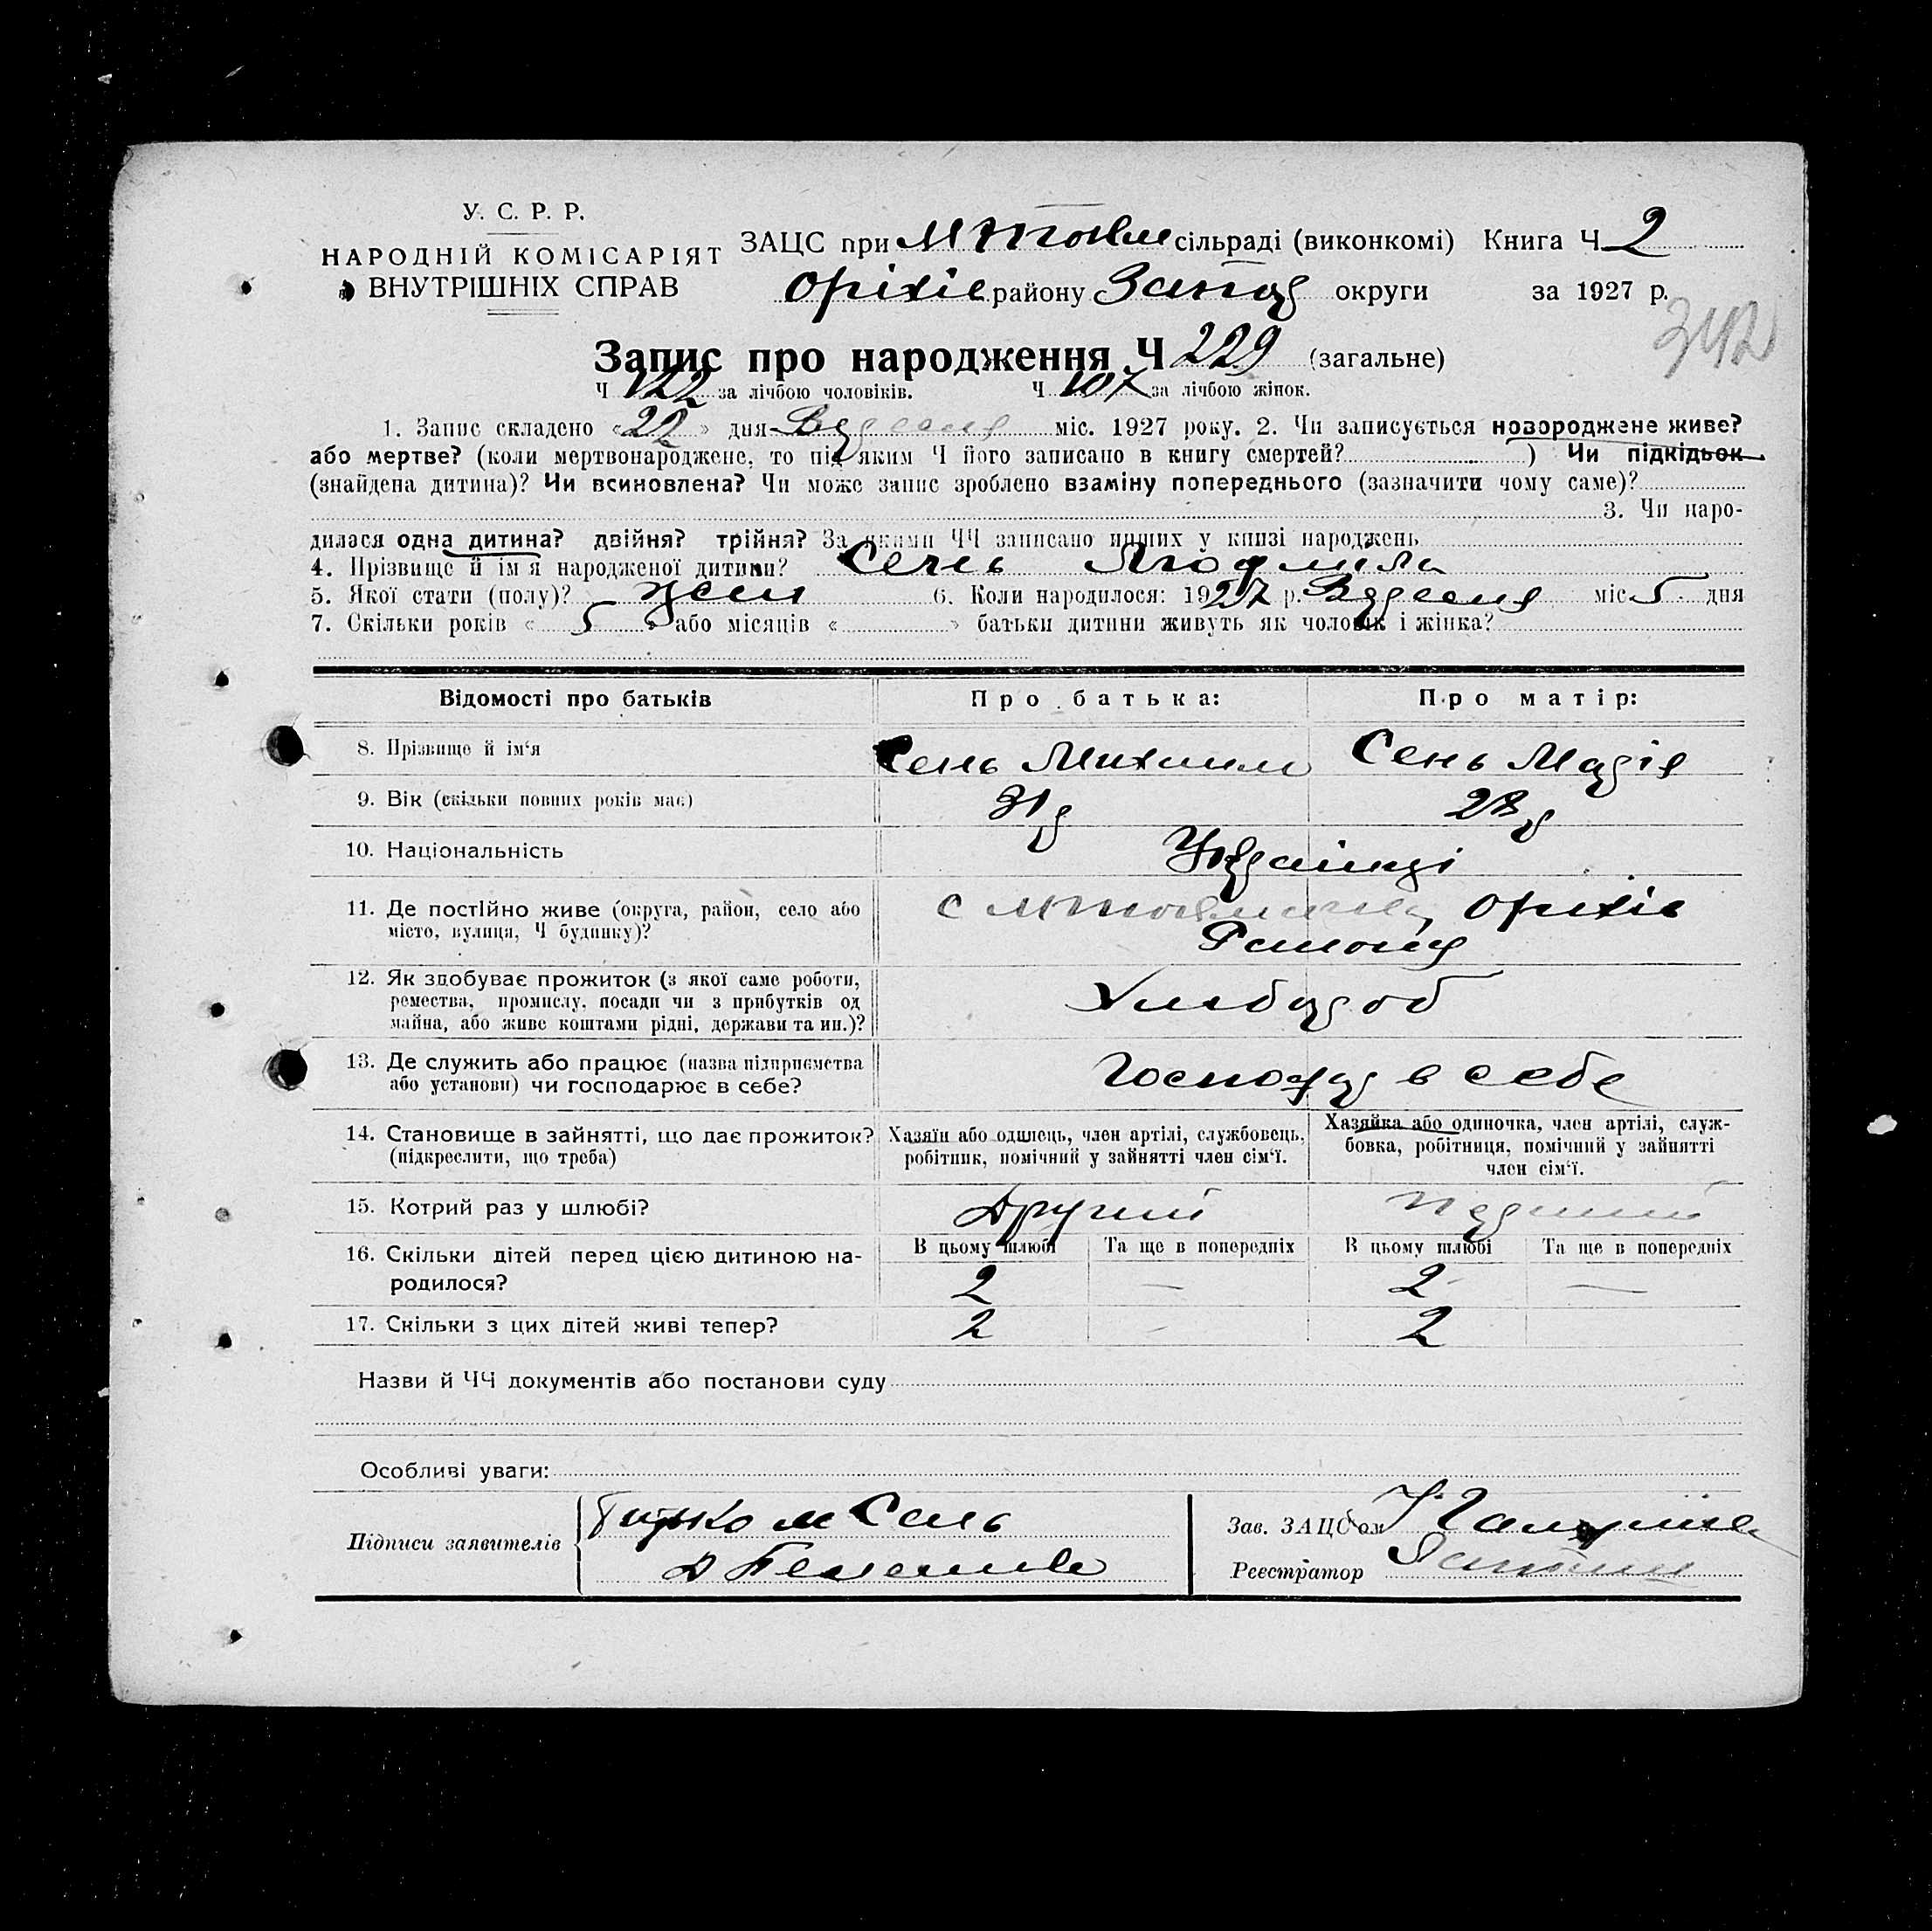 У. С. Р. Р.
НАРОДНІЙ КОМІСАРІЯТ
ВНУТРІШНІХ СПРАВ
ЗАЦС при М Токм сільраді (виконкомі) Книга Ч 2
Оріхів району Запор округи за 1927 р.
342
Запис про народження Ч 229 (загальне)
Ч 122 за лічбою чоловіків. Ч 107 за лічбою жінок.
1. Запис складено «22» дня Вересня міс. 1927 року. 2. Чи записується новороджене живе?
або мертве? (коли мертвонароджене, то під яким Ч його записано в книгу смертей? ) Чи підкідьок
(знайдена дитина)? Чи всиновлена? Чи може запис зроблено взаміну попереднього (зазначити чому саме)?
3. Чи наро-
дилася одна дитина? двійня? трійня? За якими ЧЧ записано инших у книзі народжень
4. Прізвище й ім'я народженої дитини? Сень Людмила
5. Якої стати (полу)? жен 6. Коли народилося: 1927 р. Вересня міс. 5 дня
7. Скільки років «5» або місяців « » батьки дитини живуть як чоловік і жінка?
Відомості про батьків Про батька: Про матір:
8. Прізвище й ім'я Сень Михаил Сень Марія
9. Вік (скільки повних років має) 31 р 28 р
10. Національність Українці
11. Де постійно живе (округа, район, село або
місто, вулиця, Ч будинку)? с Оріхів
Району
12. Як здобуває прожиток (з якої саме роботи,
ремества, промислу, посади чи з прибутків од
майна, або живе коштами рідні, держави та ин.)? Хлібороб
13. Де служить або працює (назва підприємства
або установи) чи господарює в себе? Господар в себе
14. Становище в зайнятті, що дає прожиток?
(підкреслити, що треба)
Хазяїн або одинець, член артілі, службовець,
робітник, помічний у зайнятті член сім'ї.
Хазяйка або одиночка, член артілі, служ-
бовка, робітниця, помічний у зайнятті
член сім'ї.
15. Котрий раз у шлюбі? Другий Перший
16. Скільки дітей перед цією дитиною на-
родилося?
В цьому шлюбі Та ще в попередніх В цьому шлюбі Та ще в попередніх
2 — 2 —
17. Скільки з цих дітей живі тепер? 2 — 2
Назви й ЧЧ документів або постанови суду
Особливі уваги:
Підписи заявителів М Сень
Зав. ЗАЦСом
Реєстратор